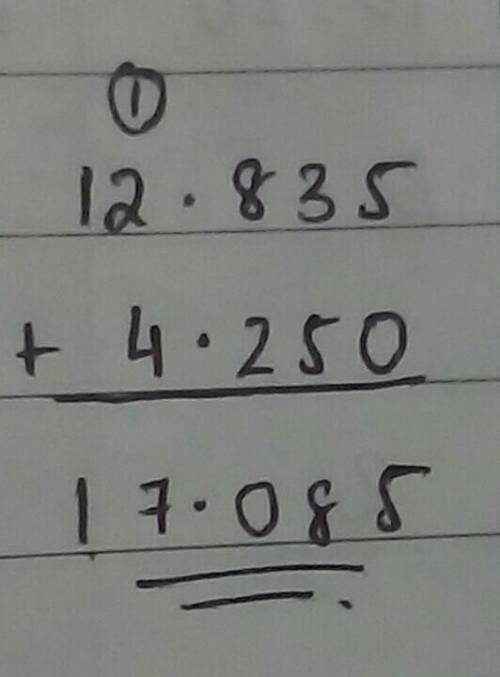 ①
12.835
+ 4.250
17.085